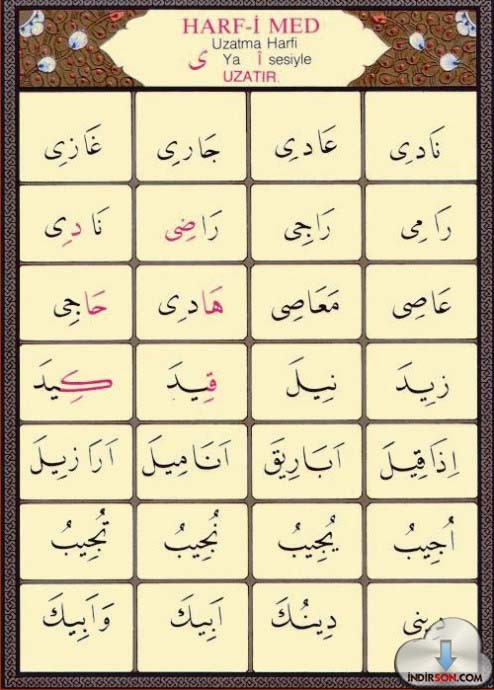 HARF-İ MED
Uzatma Harfi
ى Ya î sesiyle
UZATIR.
نَادِى عَادِى جَارِى غَازِى
رَامِى رَاجِى رَاضِى نَادِى
عَاصِى مَعَاصِى هَادِى حَاجِى
زِيدَ نِيلَ قِيدَ كِيدَ
اِذَاقِيلَ اَبَارِيقَ اَنَامِيلَ اَرَازِيلَ
اُجِيبُ يُجِيبُ نُجِيبُ تُجِيبُ
دِينِى دِينُكَ اَبِيكَ وَاَبِيكَ
İNDİRSON.COM